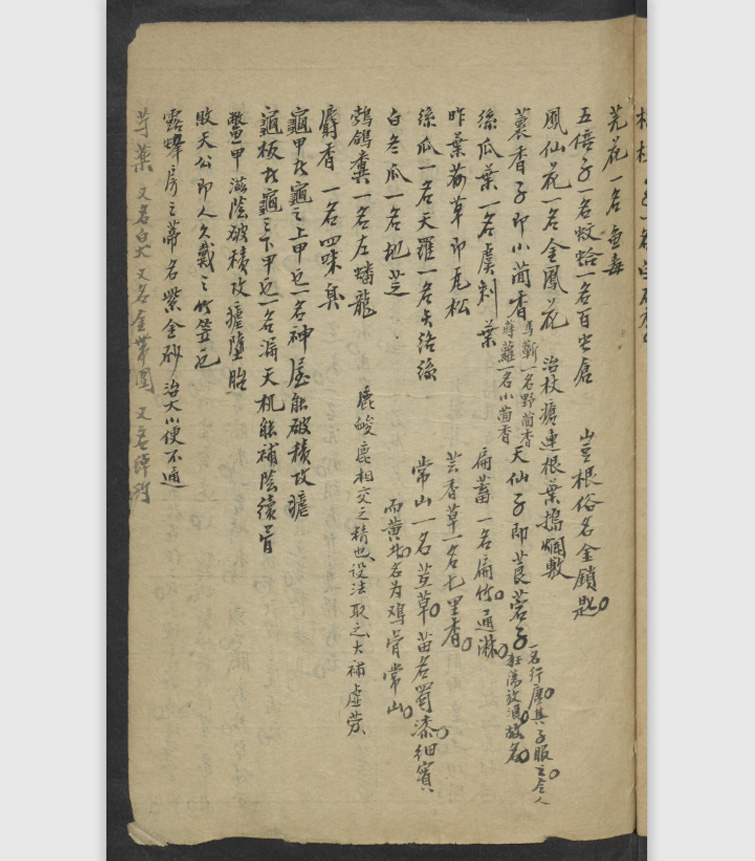 芫花一名魚毒
五倍子一名蚊蛤一名百虫倉 山豆根俗名金鎖匙
鳳仙花一名金鳳花 治杖瘡連根葉搗爛敷
蘹香子即小茴香 馬蘄一名野茴香 蒔蘿一名小茴香 天仙子即莨菪子 一名行唐其子服之令人狂蕩放浪故名
絲瓜葉一名虞刺葉 扁蓄一名扁竹通淋
昨葉荷草即瓦松 芸香草一名七里香
絲瓜一名天羅一名天絡絲 常山一名互草苗名蜀漆細實
白冬瓜一名地芝 而黃者名為鷄骨常山
鵓鴿糞一名左蟠龍 鹿峻鹿相交之精也設法取之大補虛勞
麝香一名四味臭
龜甲即龜之上甲也一名神屋能破積攻瘧
龜板即龜之下甲也一名漏天机能補陰續骨
鱉甲滋陰破積攻瘧墮胎
敗天公即人久戴之竹笠也
露蜂房之蒂名紫金砂治大小便不通
芍藥 又名白犬 又名金帶圍